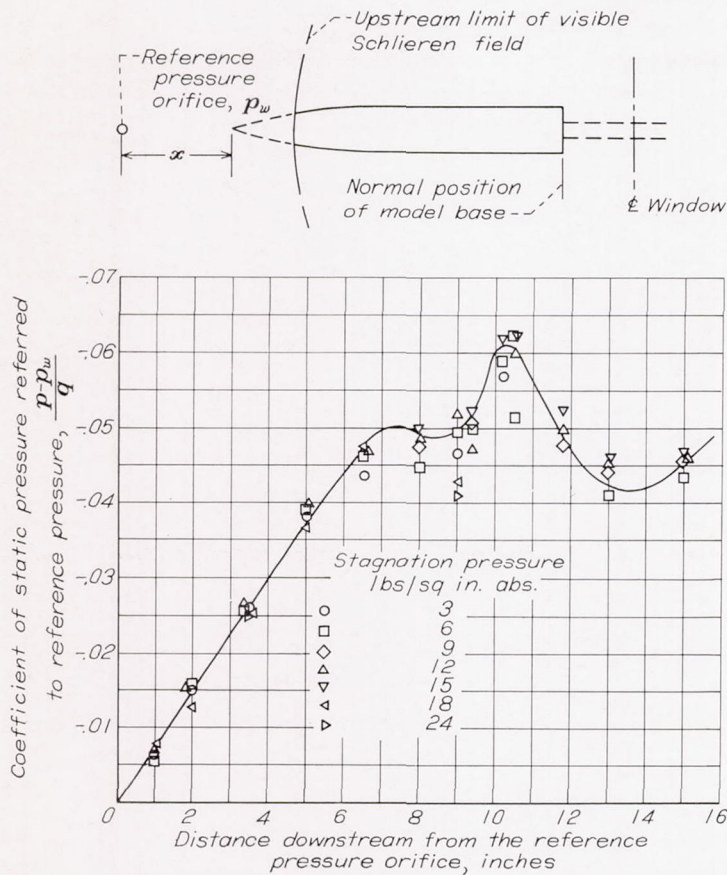 Upstream limit of visible
Schlieren field
Reference
pressure
orifice, p_w
x
Normal position
of model base
℄ Window
Coefficient of static pressure referred
to reference pressure, p-p_w/q
-.07
-.06
-.05
-.04
-.03
-.02
-.01
0
2
4
6
8
10
12
14
16
Stagnation pressure
lbs/sq in. abs.
3
6
9
12
15
18
24
Distance downstream from the reference
pressure orifice, inches